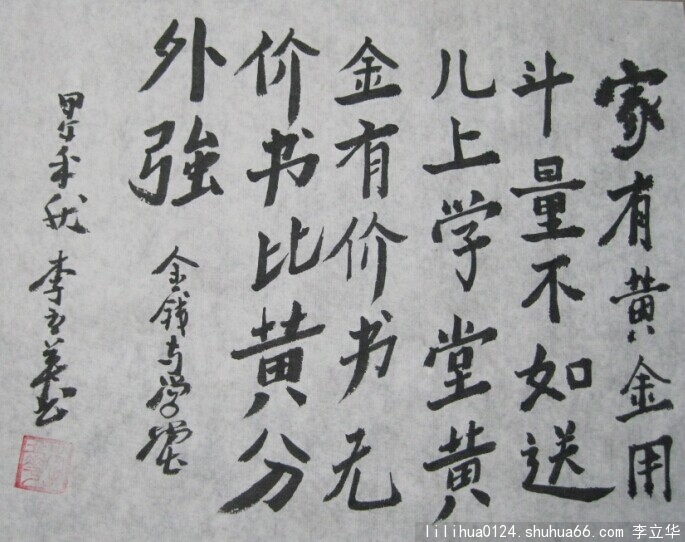 家有黄金用
斗量不如送
儿上学堂黄
金有价书无
价书比黄分
外強
金钱与学堂
甲午年秋 李立华书
lilihua0124.shuhua66.com 李立华